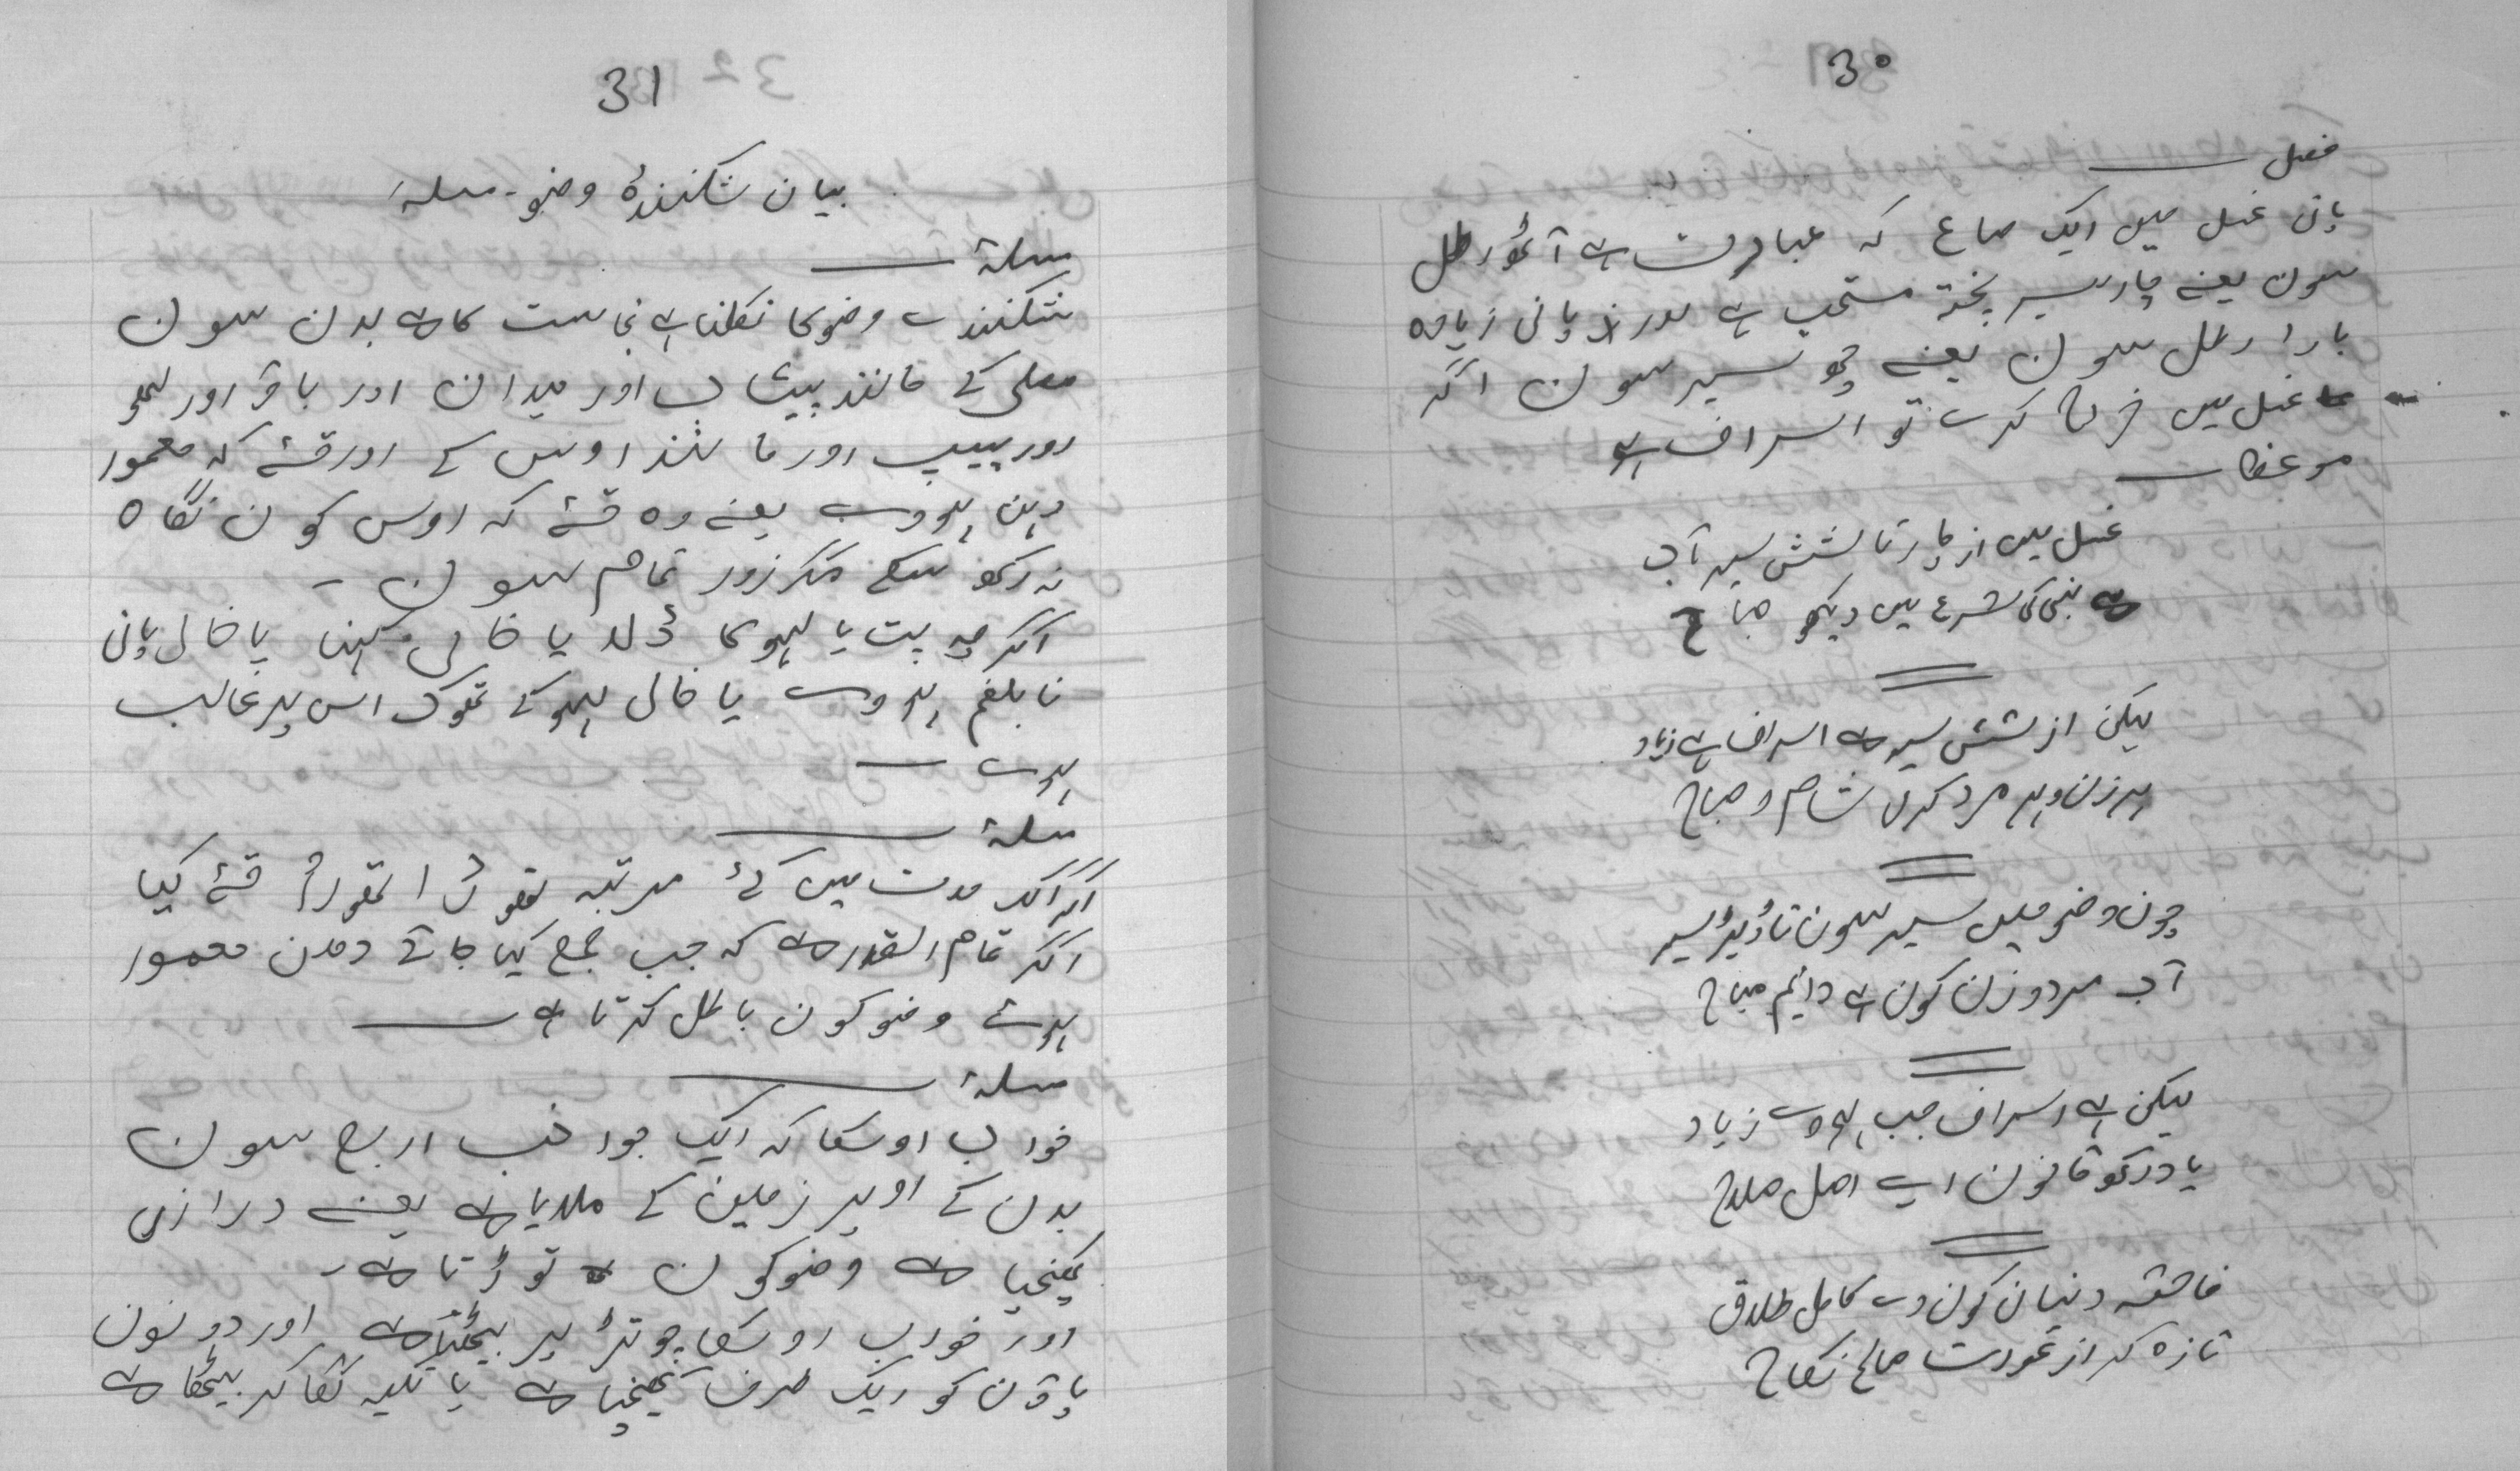 30
فصل
پانی غسل میں ایک صاع کہ عبارت ہے آٹھ رطل
سون یعنے چار سیر پختہ مستحب ہے اور پانی زیادہ
بارا رطل سون یعنے چھ سیر سون اگر
غسل میں خرچ کرے تو اسراف ہے
موعظت
غسل میں از چار تا شش سیر آب
ہے نبی کی شرع میں دیکھو مباح
لیکن از شش سیر ہے اسراف ہے زیاد
ہر زن و ہر مرد کرں شام و صباح
چون وضو میں سیر سون تا ڈیڑ سیر
آب مرد و زن کون ہے دایم مباح
لیکن ہے اسراف جب ہووے زیاد
یاد رکھو قانون اے اهل صلاح
فاحشہ دنیان کون دے کامل طلاق
تازہ کر از عورت صالح نکاح
31
بیان شکنندۂ وضو - مسلہٴ
مسلہٴ
شکنندے وضو کا نکلنا ہے نجاست کا ہے بدن سون
مصلی کے مانند پیشاب اور میدان اور باؤ اور لھو
اور پیپ اور مانند اوس کے اور قئے کہ معمور
دہن ہووے یعنے وہ قئے کہ اوس کون نگاہ
نہ رکھ سکے مگر زور تمام سون -
اگرچہ پت یا لہو کا ڈلا یا خالی یا خالی پانی
نا بلغم ہووے یا خالی لہو کے تھوک اس پر غالب
ہوے
مسلہٴ
اگر ایک مدت میں کئے مرتبہ تھوڑا تھوڑا قئے کیا
اگر تمام القدر ہے کہ جب جمع کیا جائے دہن معمور
ہوئے وضو کون باطل کرتا ہے
مسلہٴ
خواب اوسکا کہ ایک جوانب اربع سون
بدن کے اوپر زمین کے ملایا ہے یعنے درازی
کھینچیا ہے وضو کون توڑتا ہے -
اور خواب اوسکا چوتڑ پر بیٹھتا ہے اور دونون
پاؤن کو ایک طرف کھینچیا ہے یا تکیہ لگا کر بیٹھا ہے